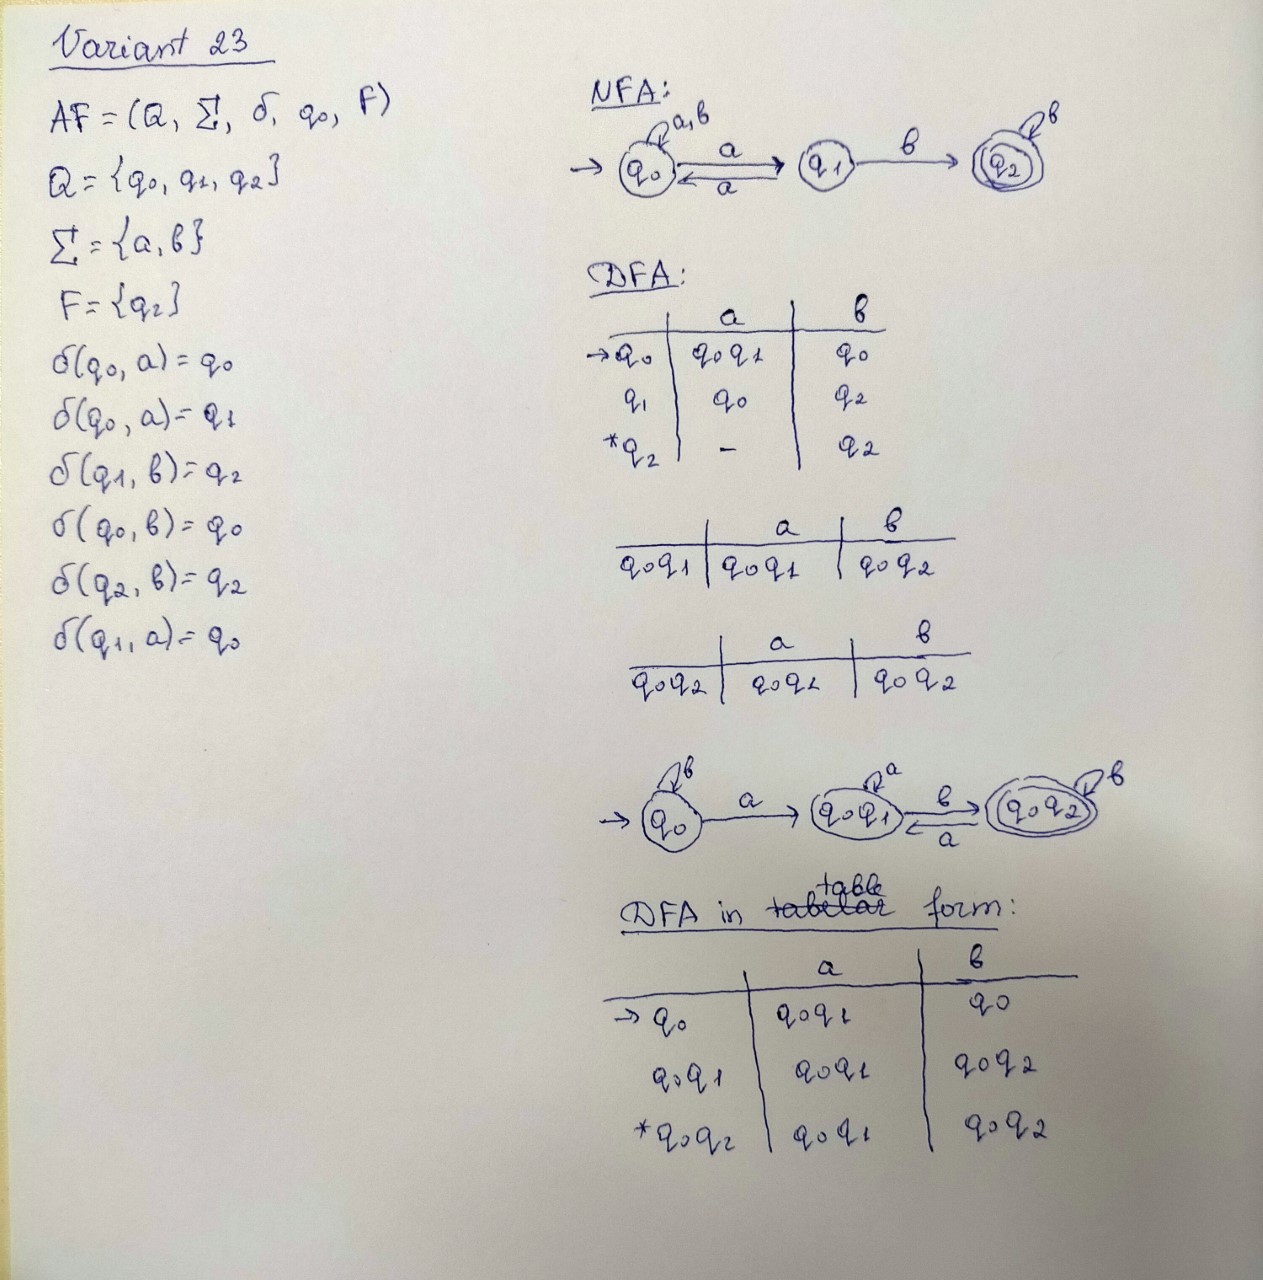 Variant 23
AF = (Q, Σ, δ, q0, F)
Q = {q0, q1, q2}
Σ = {a, b}
F = {q2}
δ(q0, a) = q0
δ(q0, a) = q1
δ(q1, b) = q2
δ(q0, b) = q0
δ(q2, b) = q2
δ(q1, a) = q0
NFA:
a, b
b
→ q0 a q1 b q2
a
DFA:
a b
→ q0 q0q1 q0
q1 q0 q2
* q2 - q2
a b
q0q1 q0q1 q0q2
a b
q0q2 q0q1 q0q2
b a b
→ q0 a q0q1 b q0q2
a
table
DFA in tabelar form:
a b
→ q0 q0q1 q0
q0q1 q0q1 q0q2
* q0q2 q0q1 q0q2